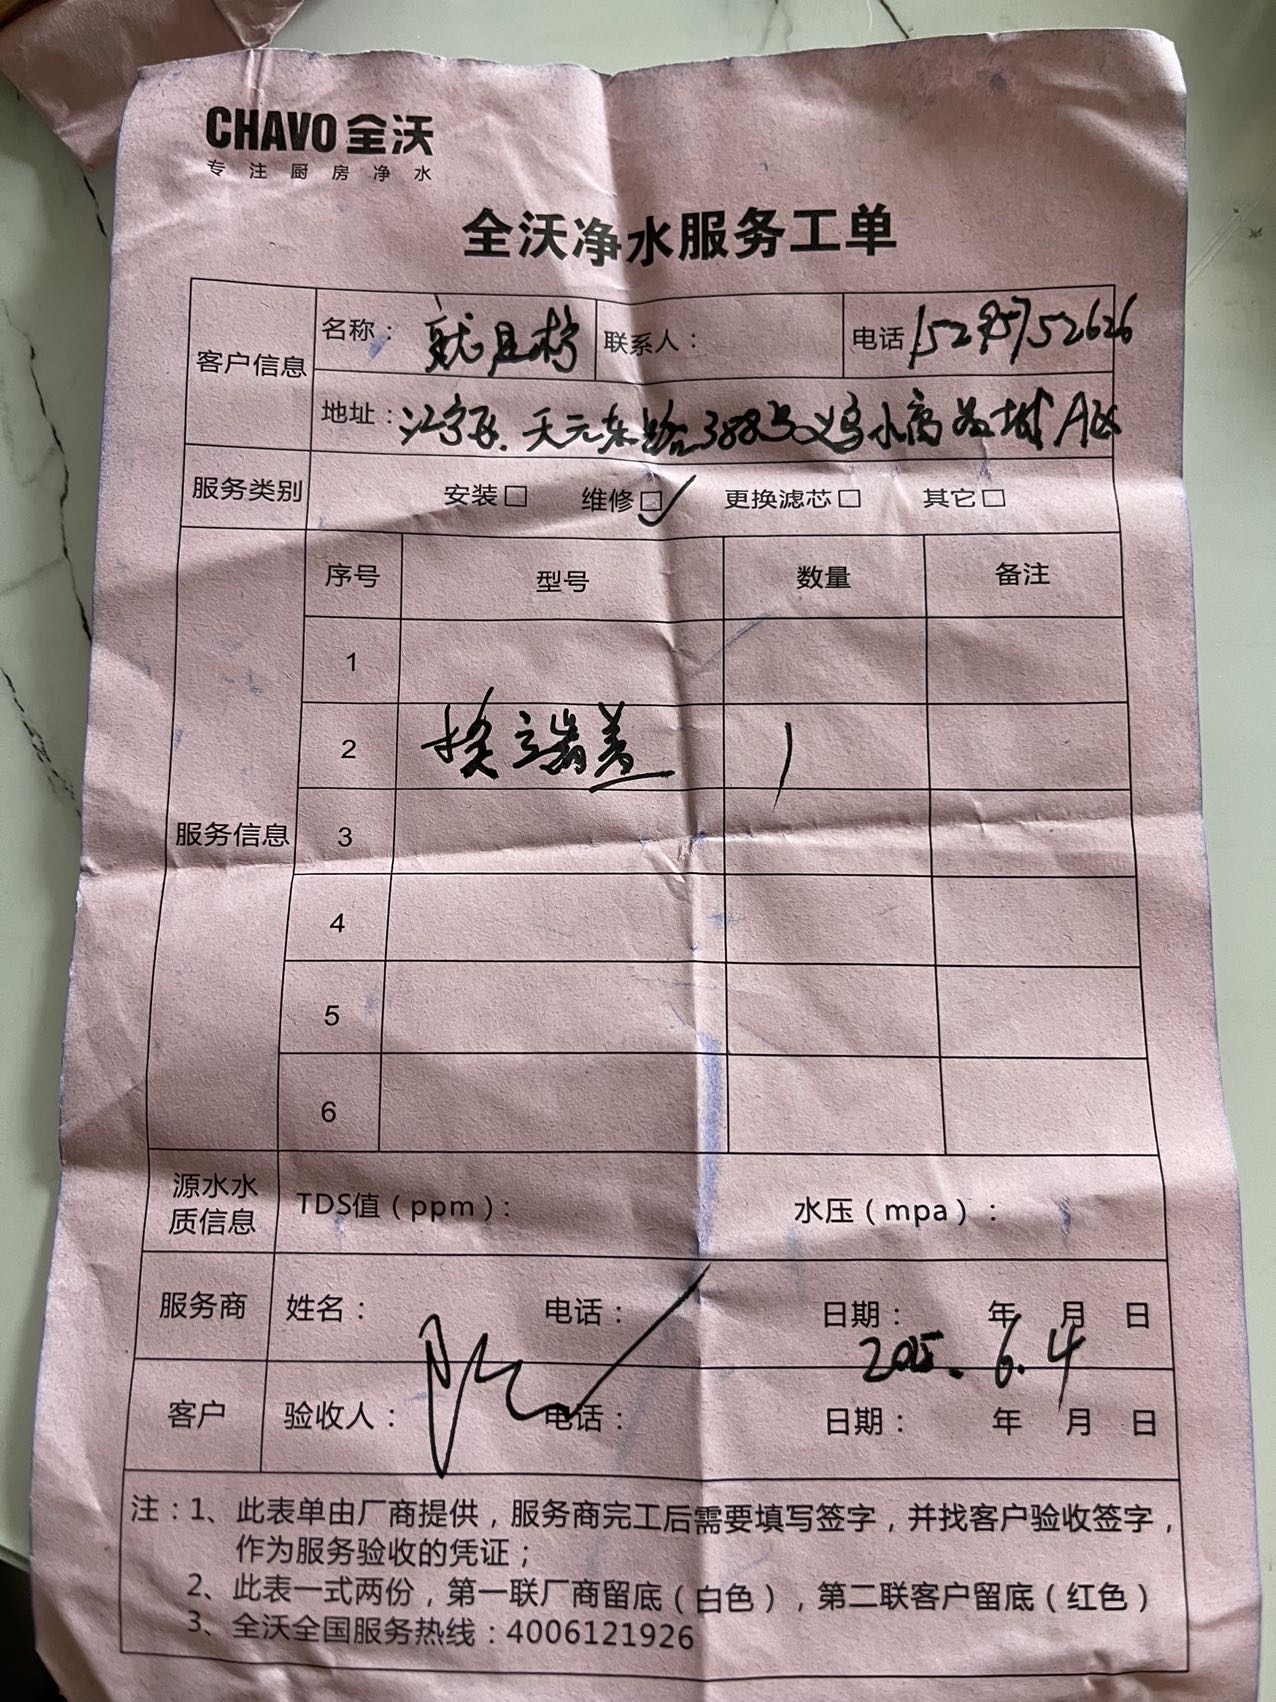 CHAVO 全沃
专注厨房净水
全沃净水服务工单
客户信息
名称： 就是柠
联系人：
电话 15295752626
地址：江宁区.天元东路388号义乌小商品城A区
服务类别
安装□ 维修□✓ 更换滤芯□ 其它□
服务信息
序号 型号 数量 备注
1
2 换立端盖 1
3
4
5
6
源水水质信息
TDS值（ppm）： 水压（mpa）：
服务商 姓名： 电话： 日期： 年 月 日
2025.6.4
客户 验收人： 电话： 日期： 年 月 日
注：1、此表单由厂商提供，服务商完工后需要填写签字，并找客户验收签字，
作为服务验收的凭证；
2、此表一式两份，第一联厂商留底（白色），第二联客户留底（红色）
3、全沃全国服务热线：4006121926